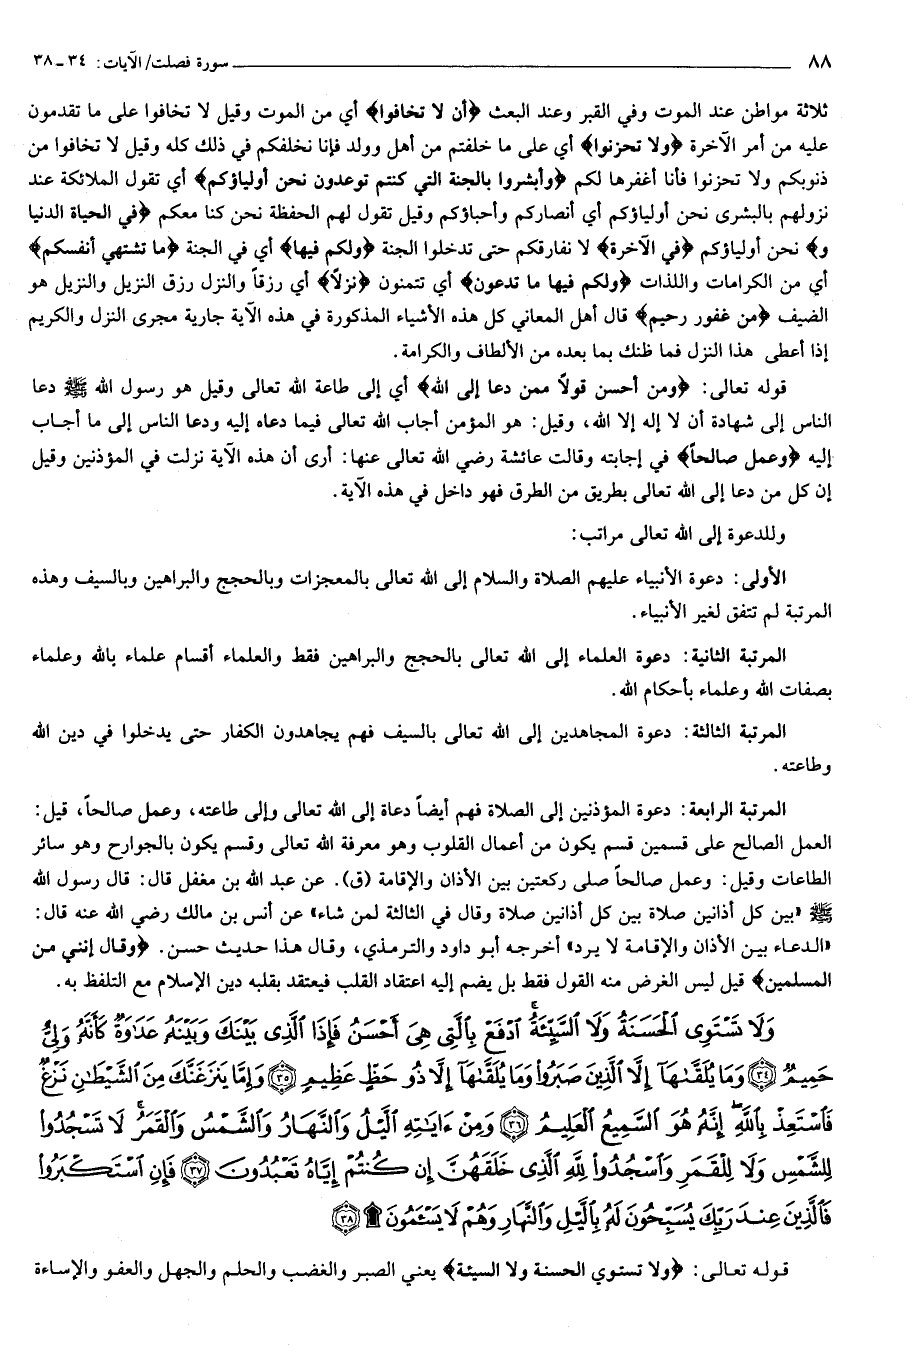 ٨٨ سورة فصلت/ الآيات: ٣٤ ـ ٣٨
ثلاثة مواطن عند الموت وفي القبر وعند البعث ﴿أن لا تخافوا﴾ أي من الموت وقيل لا تخافوا على ما تقدمون
عليه من أمر الآخرة ﴿ولا تحزنوا﴾ أي على ما خلفتم من أهل وولد فإنا نخلفكم في ذلك كله وقيل لا تخافوا من
ذنوبكم ولا تحزنوا فأنا أغفرها لكم ﴿وأبشروا بالجنة التي كنتم توعدون نحن أولياؤكم﴾ أي تقول الملائكة عند
نزولهم بالبشرى نحن أولياؤكم أي أنصاركم وأحباؤكم وقيل تقول لهم الحفظة نحن كنا معكم ﴿في الحياة الدنيا
و﴾ نحن أولياؤكم ﴿في الآخرة﴾ لا نفارقكم حتى تدخلوا الجنة ﴿ولكم فيها﴾ أي في الجنة ﴿ما تشتهي أنفسكم﴾
أي من الكرامات واللذات ﴿ولكم فيها ما تدعون﴾ أي تتمنون ﴿نزلاً﴾ أي رزقاً والنزل رزق النزيل والنزيل هو
الضيف ﴿من غفور رحيم﴾ قال أهل المعاني كل هذه الأشياء المذكورة في هذه الآية جارية مجرى النزل والكريم
إذا أعطى هذا النزل فما ظنك بما بعده من الألطاف والكرامة.
قوله تعالى: ﴿ومن أحسن قولاً ممن دعا إلى الله﴾ أي إلى طاعة الله تعالى وقيل هو رسول الله ﷺ دعا
الناس إلى شهادة أن لا إله إلا الله، وقيل: هو المؤمن أجاب الله تعالى فيما دعاه إليه ودعا الناس إلى ما أجاب
إليه ﴿وعمل صالحاً﴾ في إجابته وقالت عائشة رضي الله تعالى عنها: أرى أن هذه الآية نزلت في المؤذنين وقيل
إن كل من دعا إلى الله تعالى بطريق من الطرق فهو داخل في هذه الآية.
وللدعوة إلى الله تعالى مراتب:
الأولى: دعوة الأنبياء عليهم الصلاة والسلام إلى الله تعالى بالمعجزات وبالحجج والبراهين وبالسيف وهذه
المرتبة لم تتفق لغير الأنبياء.
المرتبة الثانية: دعوة العلماء إلى الله تعالى بالحجج والبراهين فقط والعلماء أقسام علماء بالله وعلماء
بصفات الله وعلماء بأحكام الله.
المرتبة الثالثة: دعوة المجاهدين إلى الله تعالى بالسيف فهم يجاهدون الكفار حتى يدخلوا في دين الله
وطاعته.
المرتبة الرابعة: دعوة المؤذنين إلى الصلاة فهم أيضاً دعاة إلى الله تعالى وإلى طاعته، وعمل صالحاً، قيل:
العمل الصالح على قسمين قسم يكون من أعمال القلوب وهو معرفة الله تعالى وقسم يكون بالجوارح وهو سائر
الطاعات وقيل: وعمل صالحاً صلى ركعتين بين الأذان والإقامة (ق). عن عبد الله بن مغفل قال: قال رسول الله
ﷺ «بين كل أذانين صلاة بين كل أذانين صلاة وقال في الثالثة لمن شاء» عن أنس بن مالك رضي الله عنه قال:
«الدعاء بين الأذان والإقامة لا يرد» أخرجه أبو داود والترمذي، وقال هذا حديث حسن. ﴿وقال إنني من
المسلمين﴾ قيل ليس الغرض منه القول فقط بل يضم إليه اعتقاد القلب فيعتقد بقلبه دين الإسلام مع التلفظ به.
وَلَا تَسْتَوِى ٱلْحَسَنَةُ وَلَا ٱلسَّيِّئَةُ ۚ ٱدْفَعْ بِٱلَّتِى هِىَ أَحْسَنُ فَإِذَا ٱلَّذِى بَيْنَكَ وَبَيْنَهُۥ عَدَٰوَةٌ كَأَنَّهُۥ وَلِىٌّ
حَمِيمٌ ﴿٣٤﴾ وَمَا يُلَقَّىٰهَآ إِلَّا ٱلَّذِينَ صَبَرُوا۟ وَمَا يُلَقَّىٰهَآ إِلَّا ذُو حَظٍّ عَظِيمٍ ﴿٣٥﴾ وَإِمَّا يَنزَغَنَّكَ مِنَ ٱلشَّيْطَٰنِ نَزْغٌ
فَٱسْتَعِذْ بِٱللَّهِ ۖ إِنَّهُۥ هُوَ ٱلسَّمِيعُ ٱلْعَلِيمُ ﴿٣٦﴾ وَمِنْ ءَايَٰتِهِ ٱلَّيْلُ وَٱلنَّهَارُ وَٱلشَّمْسُ وَٱلْقَمَرُ ۚ لَا تَسْجُدُوا۟
لِلشَّمْسِ وَلَا لِلْقَمَرِ وَٱسْجُدُوا۟ لِلَّهِ ٱلَّذِى خَلَقَهُنَّ إِن كُنتُمْ إِيَّاهُ تَعْبُدُونَ ﴿٣٧﴾ فَإِنِ ٱسْتَكْبَرُوا۟
فَٱلَّذِينَ عِندَ رَبِّكَ يُسَبِّحُونَ لَهُۥ بِٱلَّيْلِ وَٱلنَّهَارِ وَهُمْ لَا يَسْـَٔمُونَ ۩ ﴿٣٨﴾
قوله تعالى: ﴿ولا تستوي الحسنة ولا السيئة﴾ يعني الصبر والغضب والحلم والجهل والعفو والإساءة